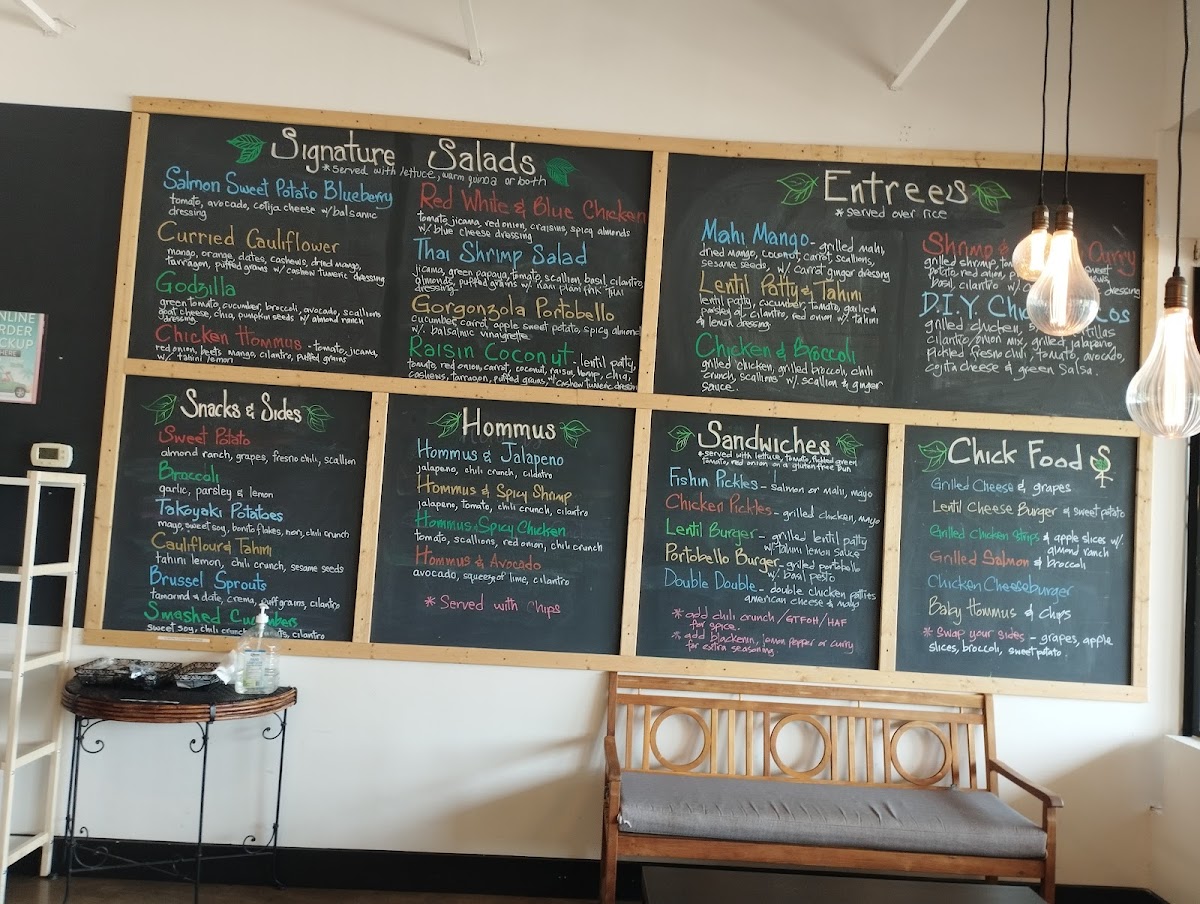 NLINE
RDER
CKUP
HERE
Signature Salads
*Served with lettuce, warm quinoa or both
Salmon Sweet Potato Blueberry
tomato, avocado, cotija cheese w/ balsamic
dressing
Curried Cauliflower
mango, orange, dates, cashews, dried mango,
tarragon, puffed grains w/ cashew tumeric dressing
Godzilla
green tomato, cucumber, broccoli, avocado, scallions
goat cheese, chia, pumpkin seeds w/ almond ranch
dressing
Chicken Hommus - tomato, jicama,
red onion, beets mango, cilantro, puffed grains
w/ tahini lemon
Red White & Blue Chicken
tomato, jicama, red onion, craisins, spicy almonds
w/ blue cheese dressing
Thai Shrimp Salad
jicama, green papaya, tomato, scallion, basil, cilantro,
almonds, puffed grains w/ nam plam prik thai
dressing
Gorgonzola Portobello
cucumber, carrot, apple sweet potato, spicy almond
w/ balsalmic vinaigrette
Raisin Coconut - lentil patty,
tomato, red onion, carrot, coconut, raisin, hemp, chia,
cashews, tarragon, puffed grains w/ cashew tumeric dressing
Entrees
*served over rice
Mahi Mango - grilled mahi,
dried mango, coconut, carrot, scallions,
sesame seeds, w/ carrot ginger dressing
Lentil Patty & Tahini
lentil patty, cucumber, tomato, garlic &
parsley oil, cilantro, red onion w/ tahini
& lemon dressing
Chicken & Broccoli
grilled chicken, grilled broccoli, chili
crunch, scallions w/ scallion & ginger
sauce
Shrimp & Curry
grilled shrimp, sweet
potato, red onion,
basil, cilantro w/
D.I.Y Chi cos
grilled chicken, tillas
cilantro/onion mix, grilled jalapeno,
pickled fresno chili, tomato, avocado,
cojita cheese & green salsa.
Snacks & Sides
Sweet Potato
almond ranch, grapes, fresno chili, scallion
Broccoli
garlic, parsley & lemon
Takoyaki Potatoes
mayo, sweet soy, bonito flakes, nori, chili crunch
Cauliflour & Tahini
tahini lemon, chili crunch, sesame seeds
Brussel Sprouts
tamarind & date, crema, puff grains, cilantro
Smashed Cucumbers
sweet soy, chili crunch, cilantro
Hommus
Hommus & Jalapeno
jalapeno, chili crunch, cilantro
Hommus & Spicy Shrimp
jalapeno, tomato, chili crunch, cilantro
Hommus & Spicy Chicken
tomato, scallions, red onion, chili crunch
Hommus & Avocado
avocado, squeeze of lime, cilantro
* Served with chips
Sandwiches
*served with lettuce, tomato, pickled green
tomato, red onion on a gluten free bun
Fishin Pickles - salmon or mahi, mayo
Chicken Pickles - grilled chicken, mayo
Lentil Burger - grilled lentil patty
w/ tahini lemon sauce
Portobello Burger - grilled portobello
w/ basil pesto
Double Double - double chicken patties
american cheese & mayo
* add chili crunch / GTFOH / HAF
for spice.
* add blackenin, lemon pepper or curry
for extra seasoning.
Chick Food
Grilled Cheese & grapes
Lentil Cheese Burger & sweet potato
Grilled Chicken Strips & apple slices w/
almond ranch
Grilled Salmon & broccoli
Chicken Cheeseburger
Baby Hommus & chips
* Swap your sides - grapes, apple
slices, broccoli, sweet potato.